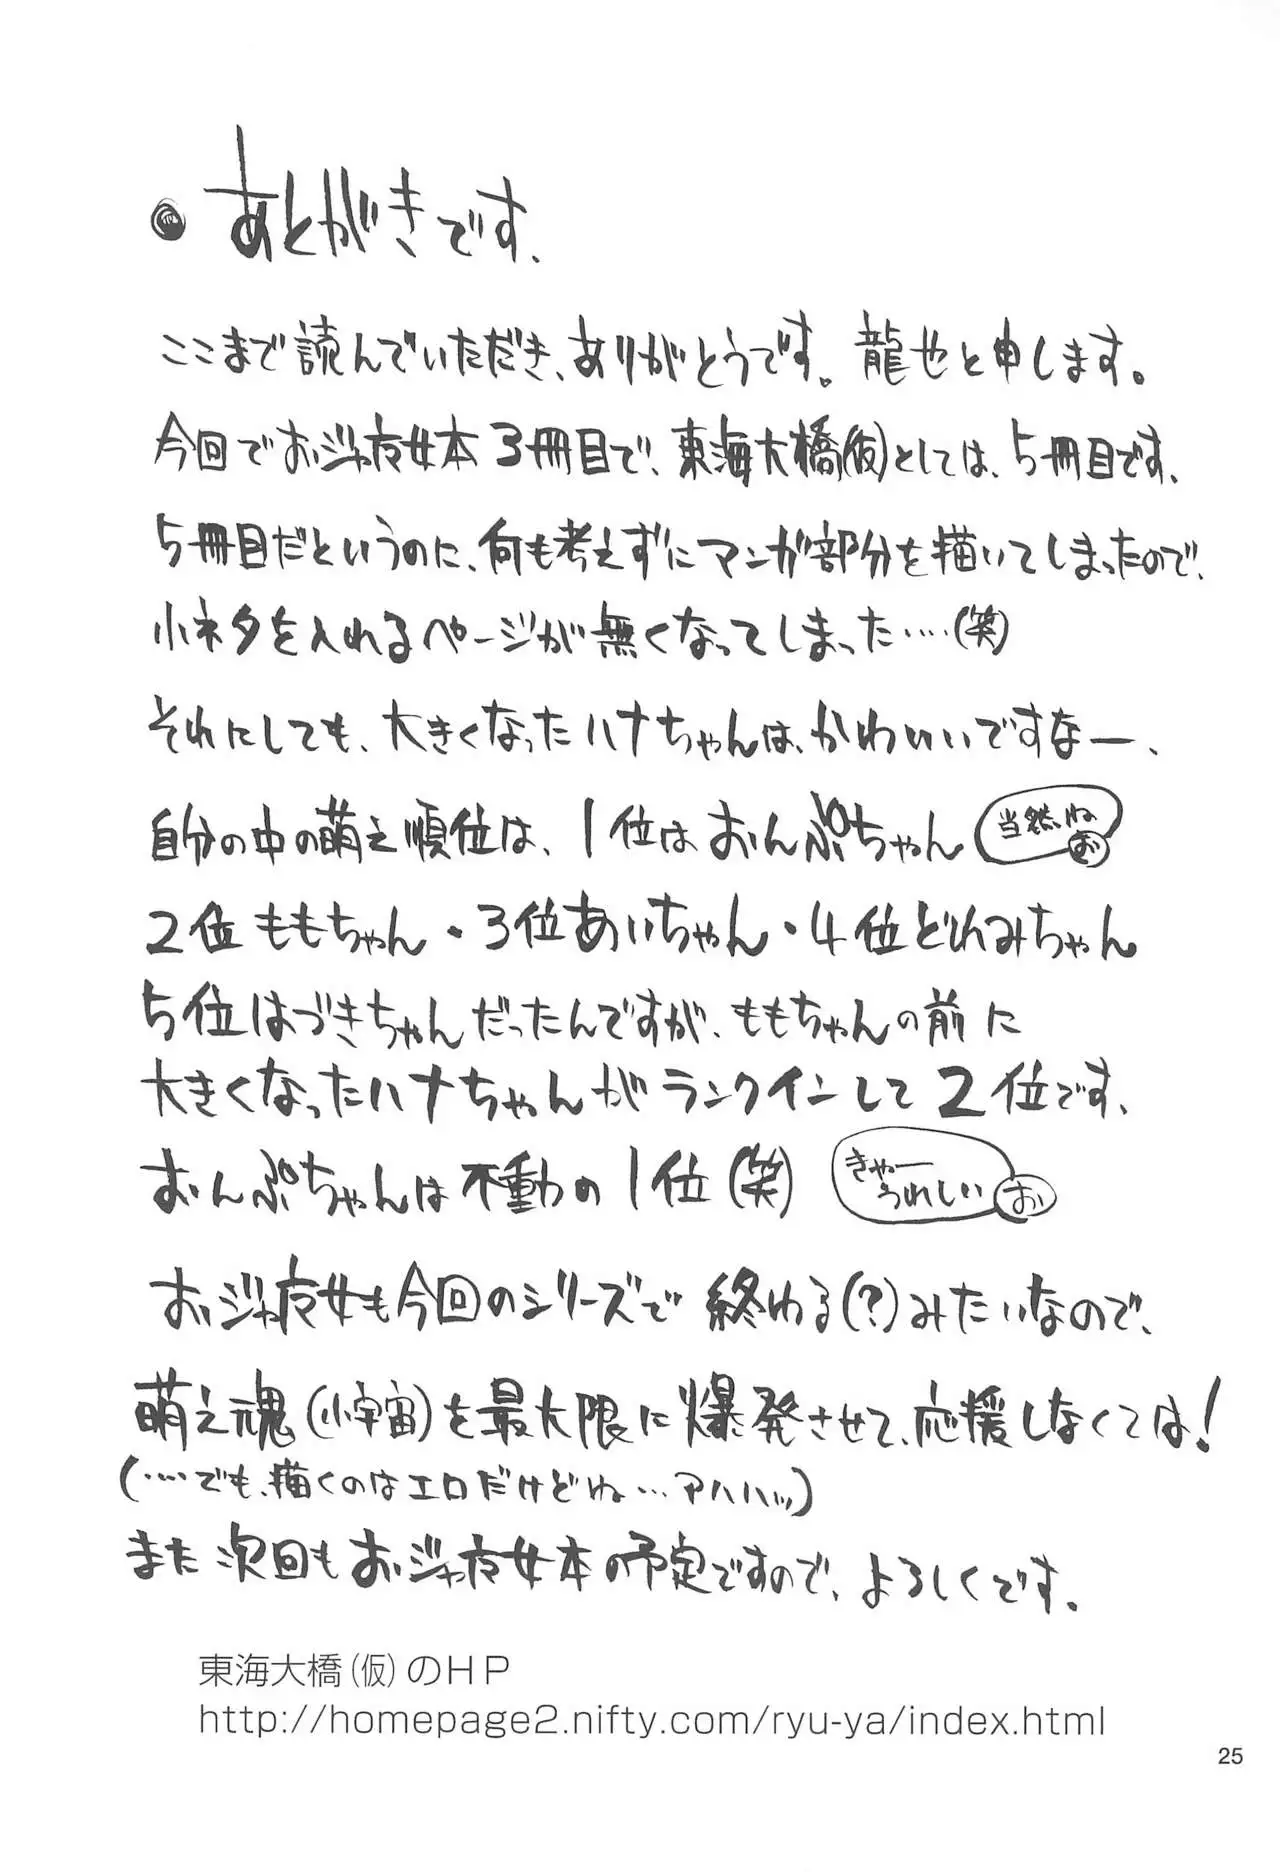 ●あとがきです、
ここまで読んでいただき、ありがとうです。龍也と申します。
今回でおジャ魔女本3冊目で、東海大橋(仮)としては、5冊目です、
5冊目だというのに、何も考えずにマンガ部分を描いてしまったので、
小ネタを入れるページが無くなってしまった‥‥(笑)
それにしても、大きくなったハナちゃんは、かわいいですなー、
自分の中の萌え順位は、1位はおんぷちゃん
当然ね
お
2位ももちゃん・3位あいちゃん・4位どれみちゃん
5位はづきちゃんだったんですが、ももちゃんの前に
大きくなったハナちゃんがランクインして2位です、
おんぷちゃんは不動の1位(笑)
きゃー
うれしい
お
おジャ魔女も今回のシリーズで終わる(?)みたいなので、
萌え魂(小宇宙)を最大限に爆発させて、応援しなくては!
(‥‥でも、描くのはエロだけどね…アハハッ)
また次回もおジャ魔女本の予定ですので、よろしくです。
東海大橋(仮)のHP
http://homepage2.nifty.com/ryu-ya/index.html
25